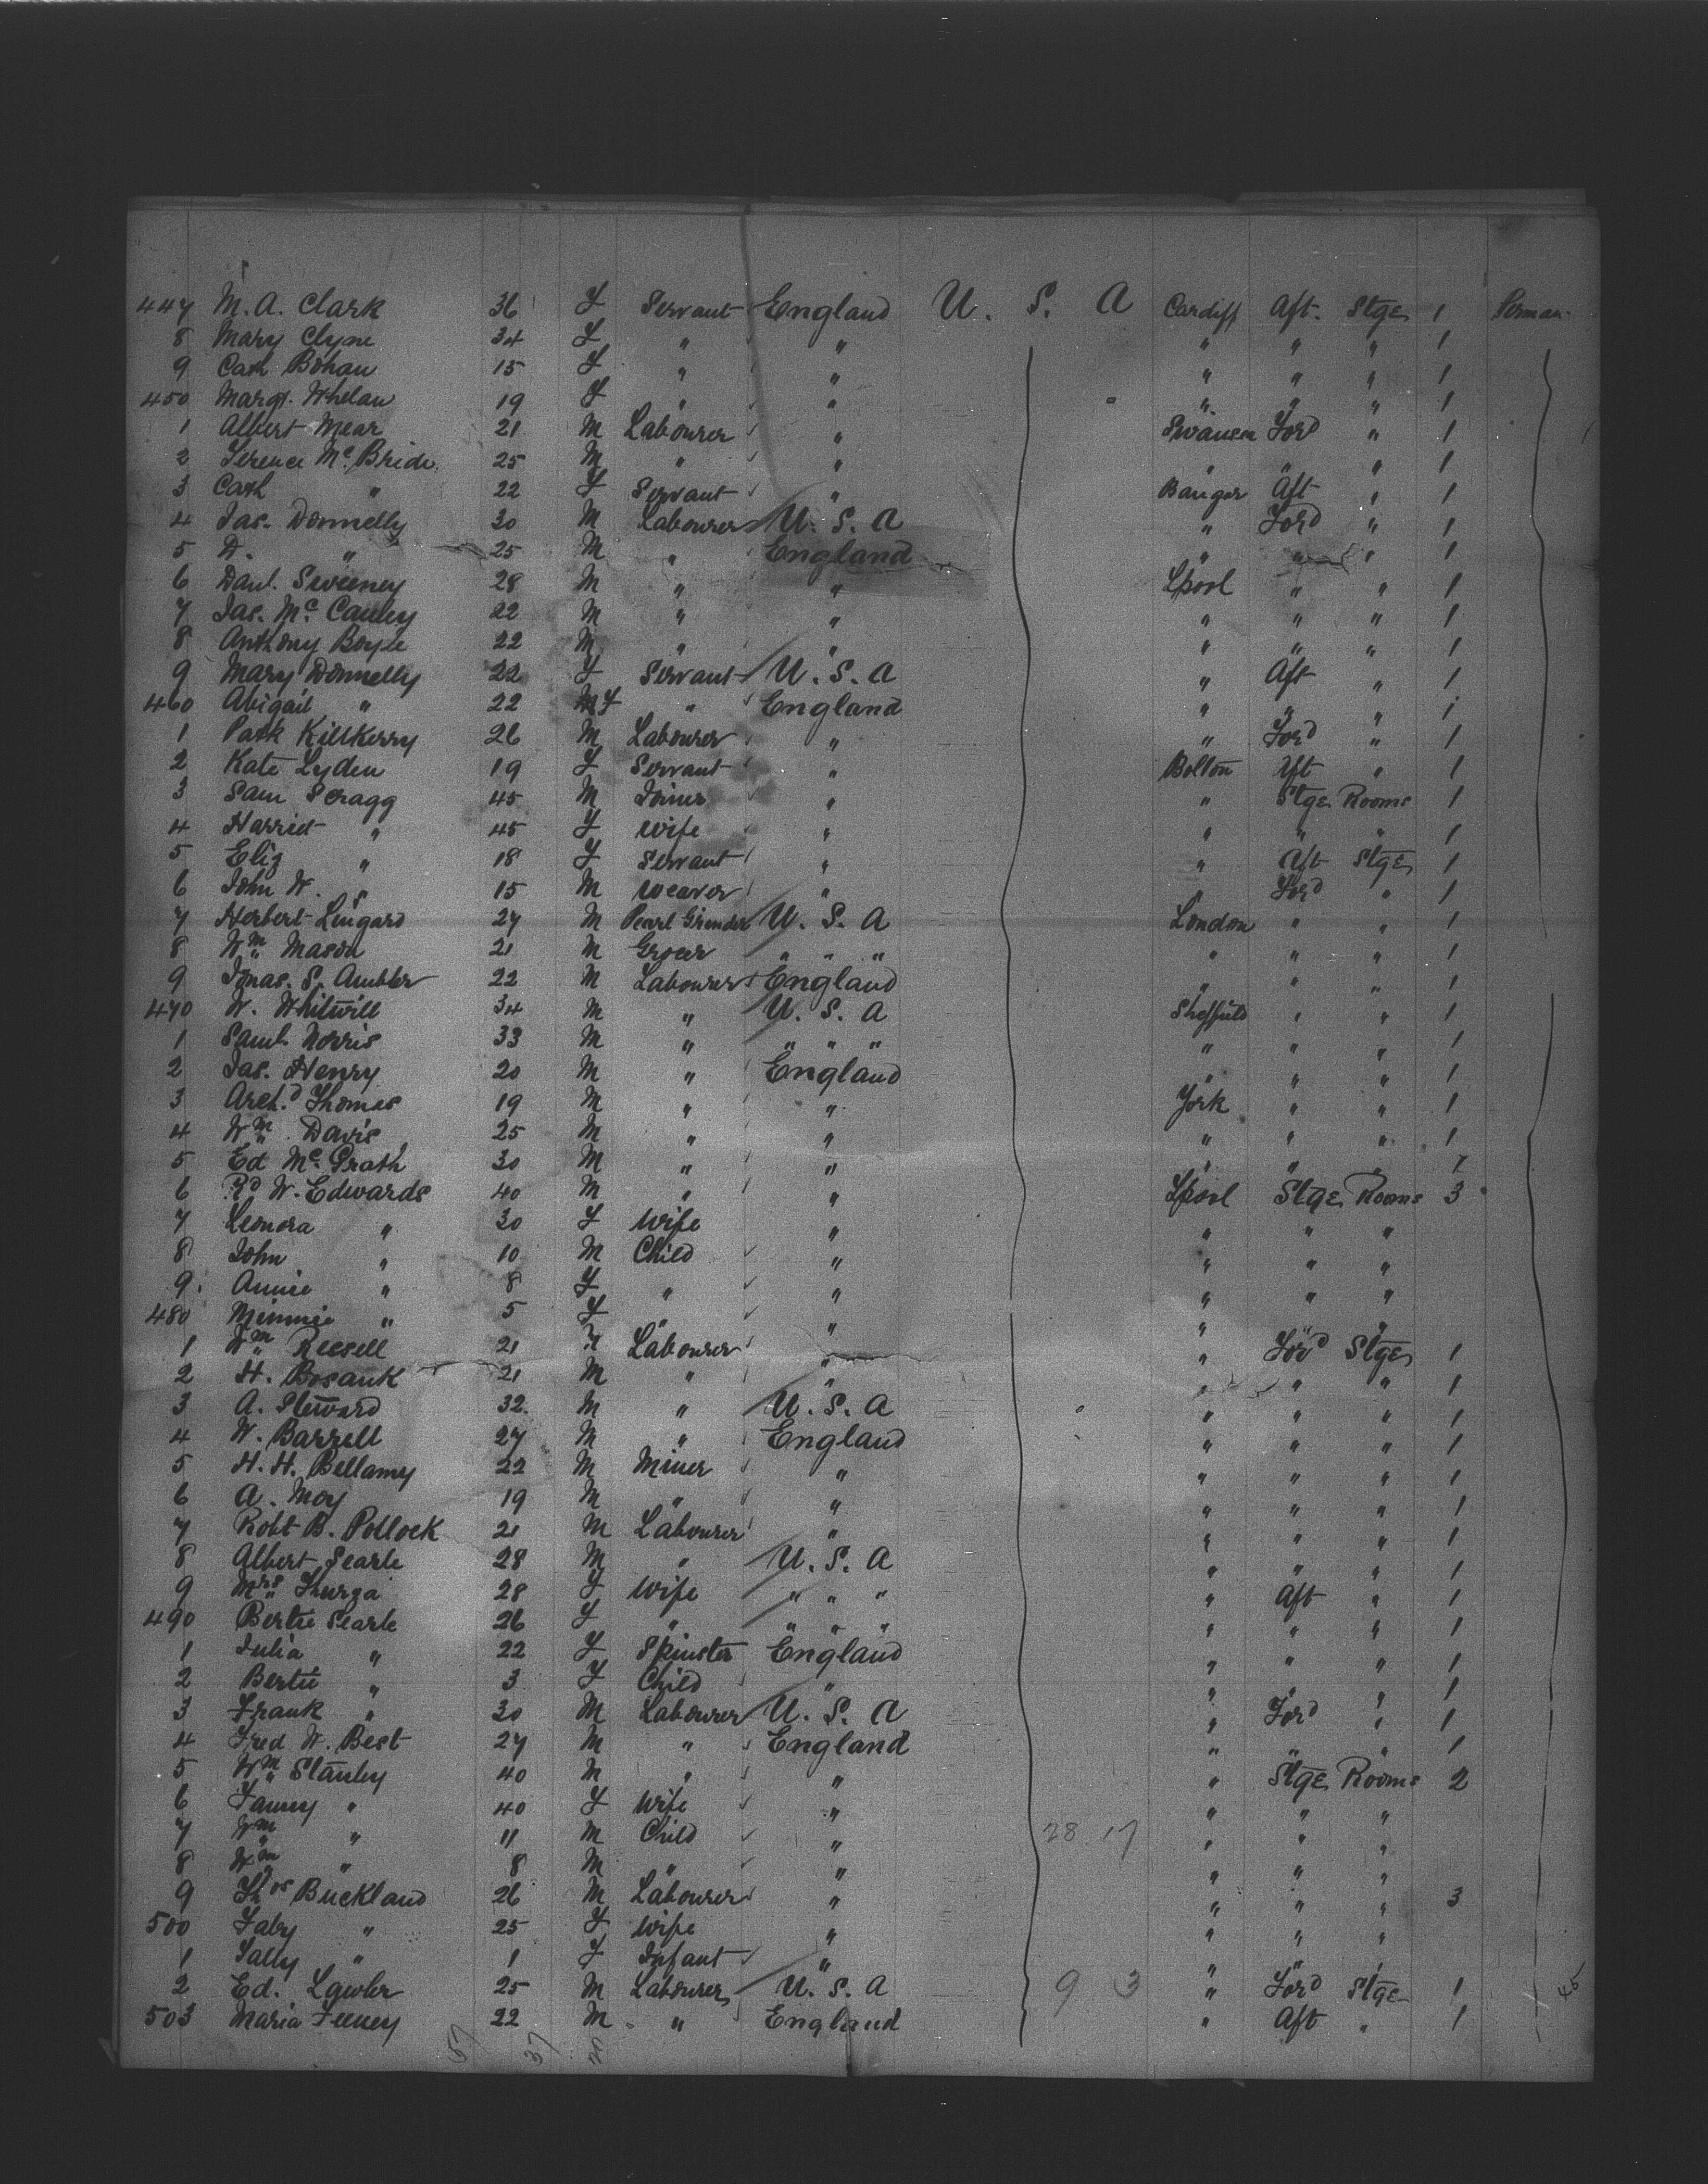 447 M. A. Clark 36 F Servant England U. S. A Cardiff Aft. Stge 1 Perman.
8 Mary Clyne 34 F " " " " " 1
9 Cath Bohan 15 F " " " " " 1
450 Margt. Whelan 19 F " " " " " 1
1 Albert Mear 21 M Labourer " Swansea Ford " 1
2 Terence Mc. Bride 25 M " " " " " 1
3 Cath " 22 F Servant " Bangor Aft " 1
4 Jas. Donnelly 30 M Labourer U. S. A " Ford " 1
5 D. " 25 M " England " " " 1
6 Danl. Sweeney 28 M " " Lpool " " 1
7 Jas. Mc. Cauley 22 M " " " " " 1
8 Anthony Boyle 22 M " " " " " 1
9 Mary Donnelly 22 F Servant U. S. A " Aft " 1
460 Abigail " 22 F " England " " " 1
1 Patk Killkerry 26 M Labourer " " Ford " 1
2 Kate Lyden 19 F Servant " Bolton Aft " 1
3 Sam Scragg 45 M Joiner " " Stge Rooms 1
4 Harriet " 45 F Wife " " " " 1
5 Eliz " 18 F Servant " " Aft Stge 1
6 John W. " 15 M Weaver " " Ford " 1
7 Herbert Lingard 27 M Pearl Grinder U. S. A London " " 1
8 Wm Mason 21 M Grocer " " " " " " 1
9 Jonas. S. Ambler 22 M Labourer England " " " 1
470 W. Whitwill 34 M " U. S. A Sheffield " " 1
1 Saml. Norris 33 M " " " " " " " 1
2 Jas. Henry 20 M " England " " " 1
3 Archd. Thomas 19 M " " York " " 1
4 Wm. Davis 25 M " " " " " 1
5 Ed Mc. Grath 30 M " " " " " 1
6 Rd W. Edwards 40 M " " Lpool Stge Rooms 3
7 Leonora " 30 F Wife " " " "
8 John " 10 M Child " " " "
9. Annie " 8 F " " " " "
480 Minnie " 5 F " " " " "
1 Wm Reesell 21 M Labourer " " Ford Stge 1
2 H. Bosank 21 M " " " " " 1
3 A. Steward 32 M " U. S. A " " " 1
4 W. Barrell 27 M " England " " " 1
5 H. H. Bellamy 22 M Miner " " " " 1
6 A. Moy 19 M " " " " " 1
7 Robt B. Pollock 21 M Labourer " " " " 1
8 Albert Searle 28 M " U. S. A " " " 1
9 Mrs Thurza 28 F Wife " " " " Aft " 1
490 Bertie Searle 26 F " " " " " " " 1
1 Julia " 22 F Spinster England " " " 1
2 Bertie " 3 F Child " " " " 1
3 Frank " 30 M Labourer U. S. A " Ford " 1
4 Fred W. Best 27 M " England " " " 1
5 Wm Stanley 40 M " " " Stge Rooms 2
6 Fanny " 40 F Wife " " " "
7 Wm " 11 M Child " 28 17 " " "
8 Wm " 8 M " " " " "
9 Thos Buckland 26 M Labourer " " " " 3
500 " 25 F Wife " " " "
1 Sally " 1 F Infant " " " "
2 Ed. Lawler 25 M Labourer U. S. A 9 3 " Ford Stge 1
503 Maria Feeney 22 M " England " Aft " 1